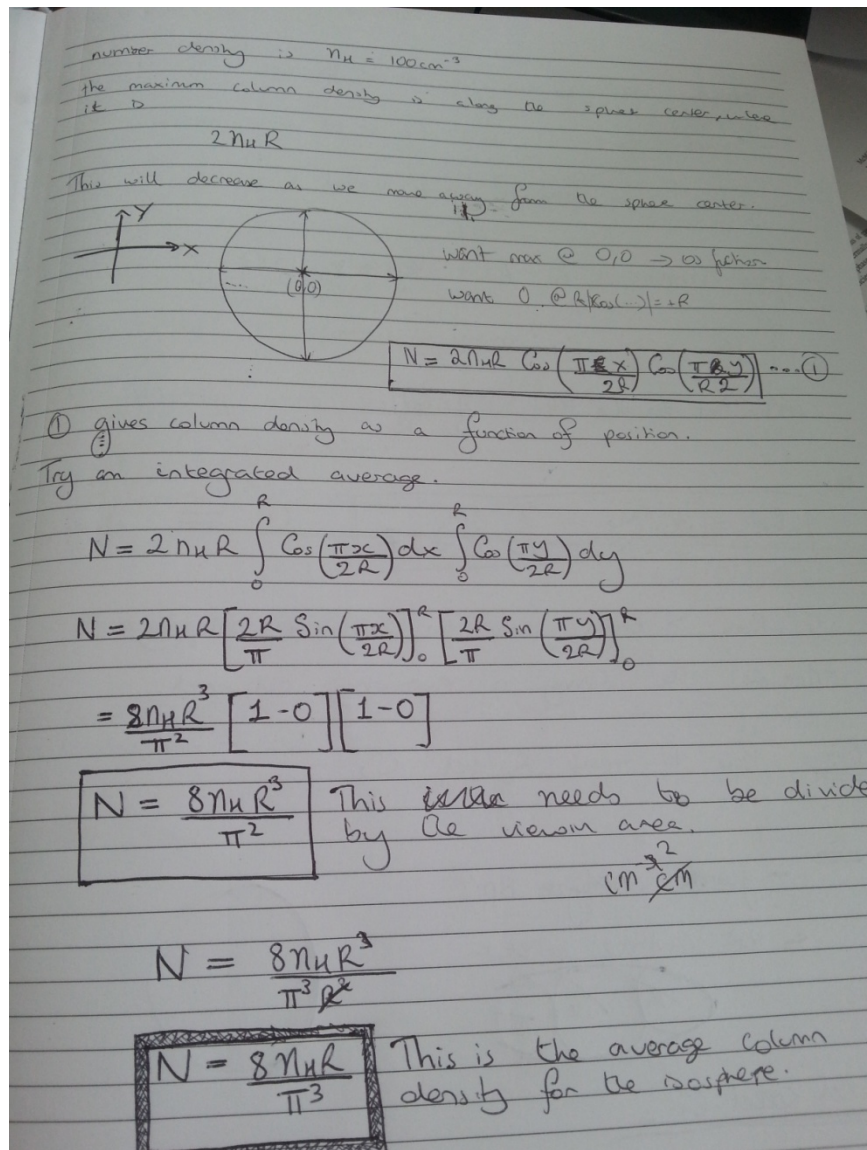 number density is n_H = 100cm⁻³
the maximum column density is along the sphere center, where
it is
2n_H R
This will decrease as we move away from the sphere center.
Y
X
(0,0)
want max @ 0,0 → cos function
want 0 @ R
N = 2n_H R Cos(πx/2R) Cos(πy/R2) ... ①
① gives column density as a function of position.
Try an integrated average.
N = 2n_H R ∫₀ᴿ Cos(πx/2R) dx ∫₀ᴿ Cos(πy/2R) dy
N = 2n_H R [2R/π Sin(πx/2R)]₀ᴿ [2R/π Sin(πy/2R)]₀ᴿ
= 8n_H R³/π² [1-0][1-0]
N = 8n_H R³/π² This needs to be divide
by the area.
N = 8n_H R³/π³R²
N = 8n_H R/π³ This is the average column
density for the isosphere.